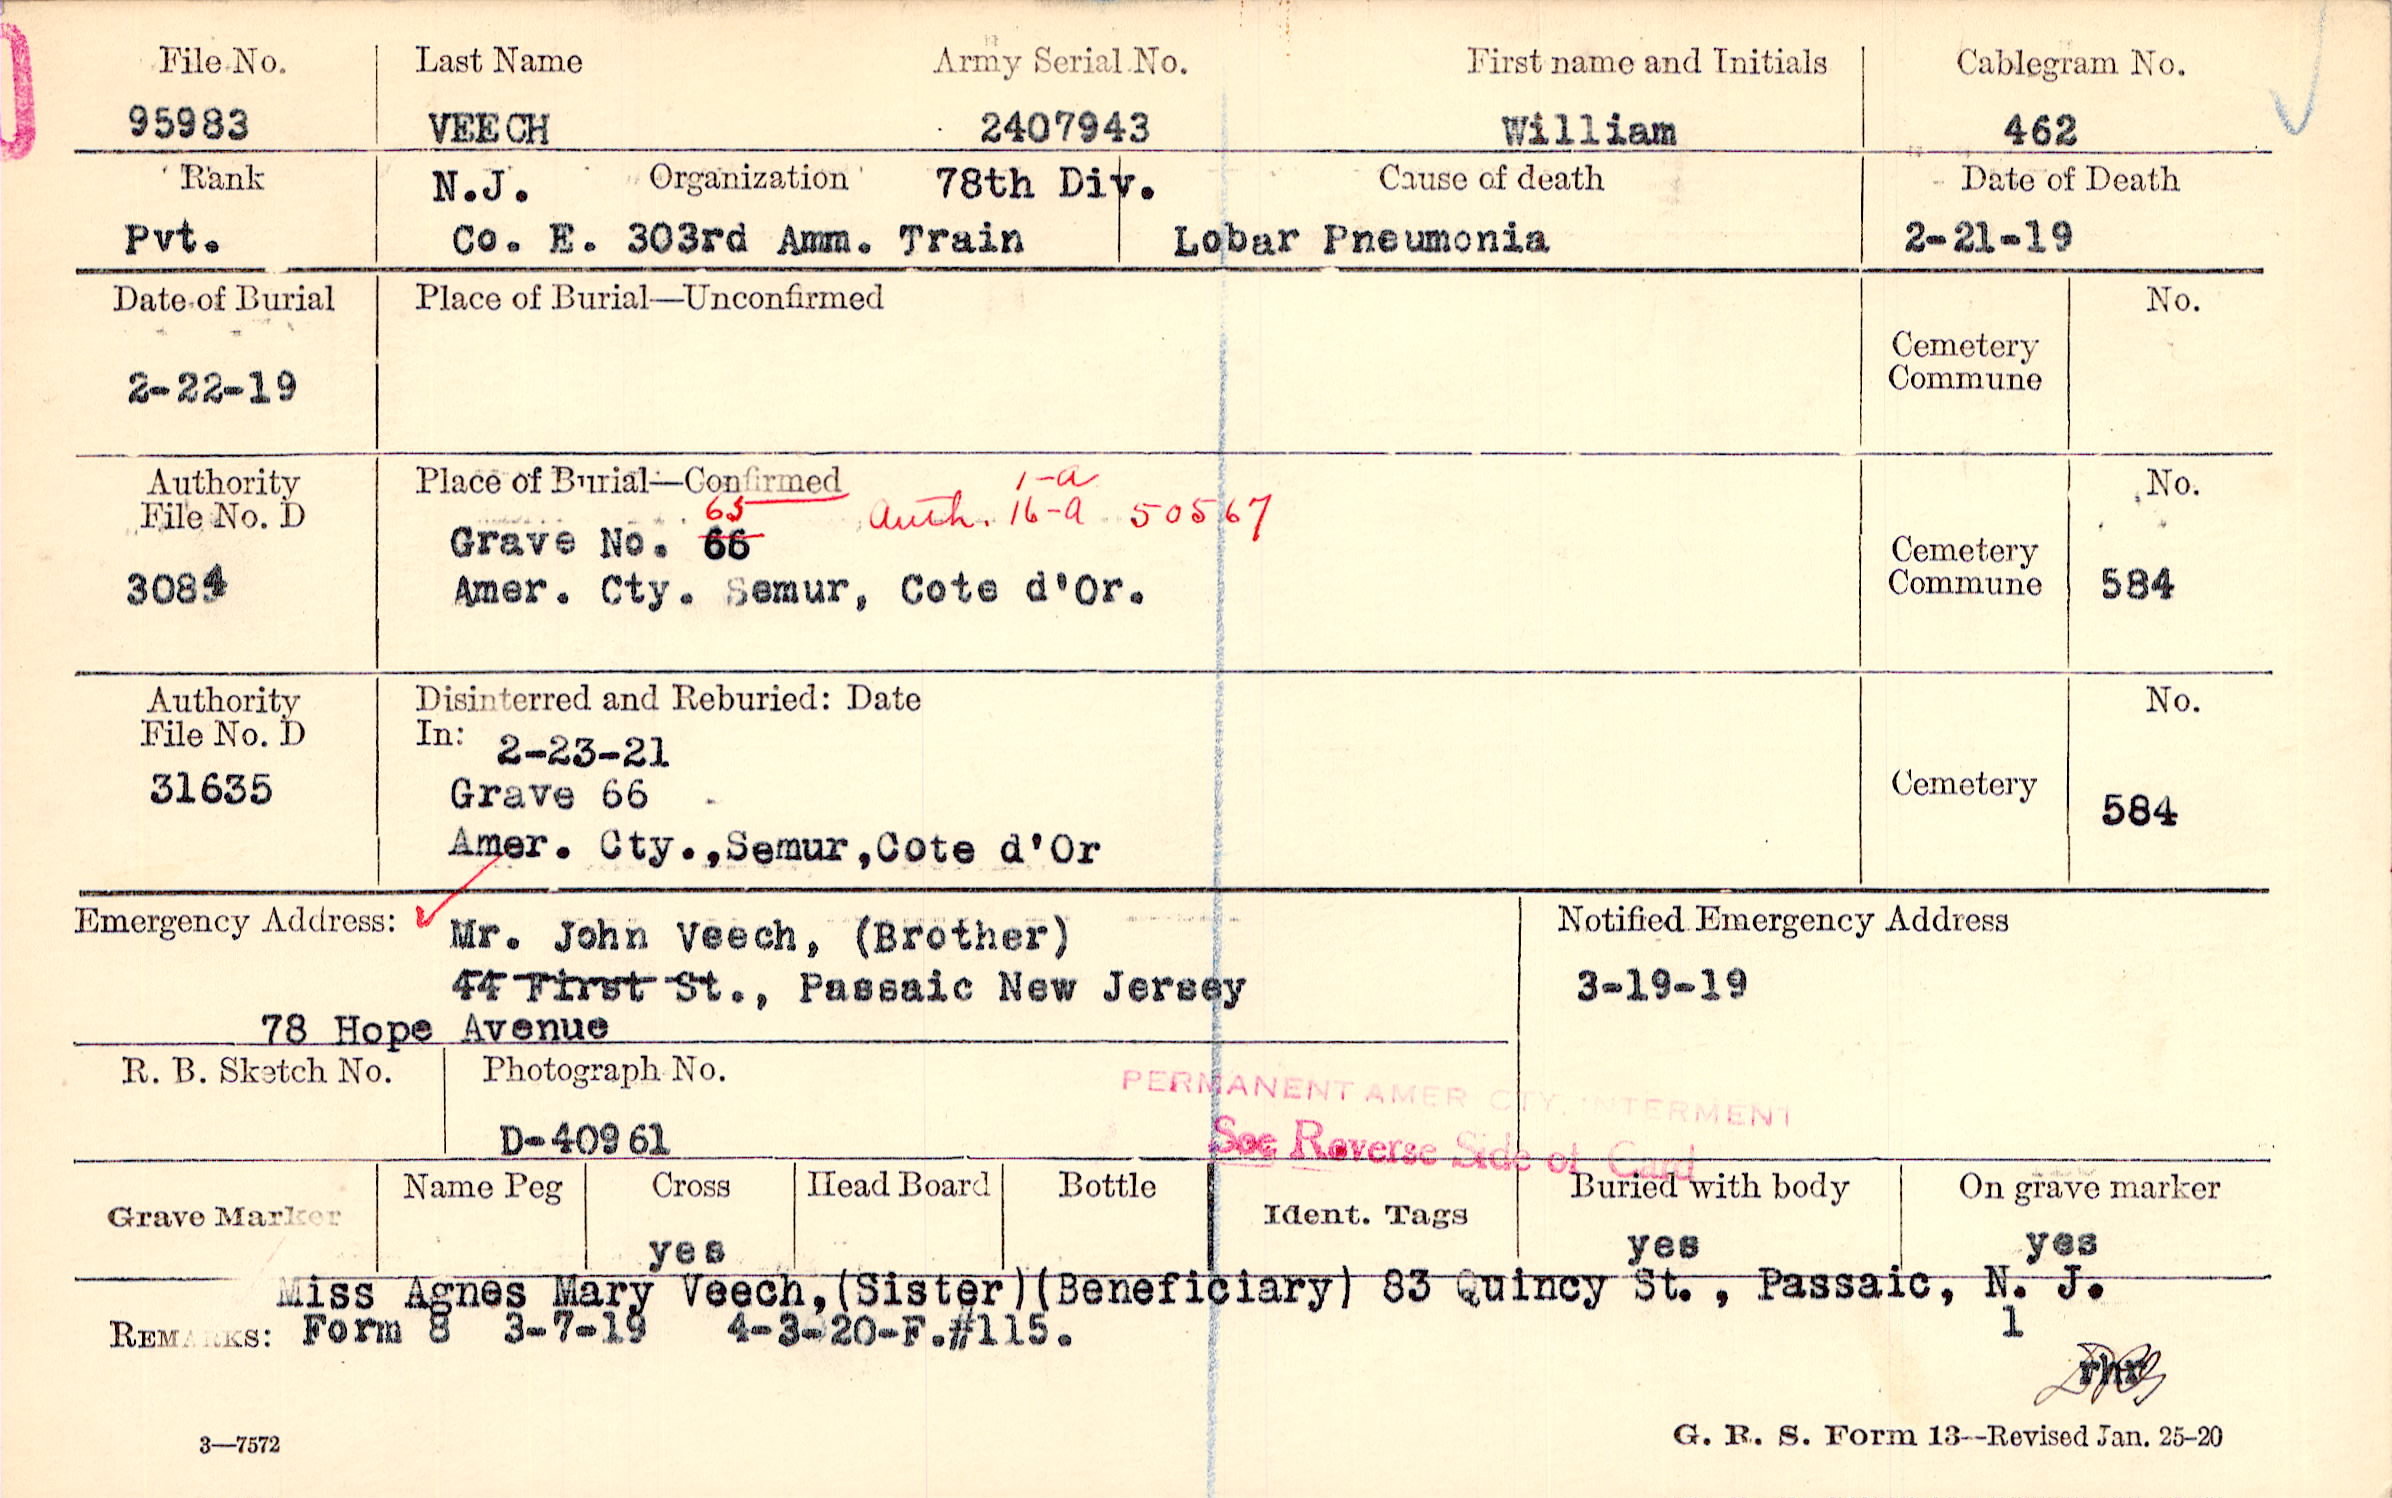 File No. Last Name Army Serial No. First name and Initials Cablegram No.
95983 VEECH 2407943 William 462
Rank N.J. Organization 78th Div. Cause of death Date of Death
Pvt. Co. E. 303rd Amm. Train Lobar Pneumonia 2-21-19
Date of Burial Place of Burial—Unconfirmed No.
Cemetery
Commune
2-22-19
Authority Place of Burial—Confirmed 1-a No.
File No. D 65 Auth. 16-a 50567
Grave No. 66 Cemetery
3084 Amer. Cty. Semur, Cote d'Or. Commune 584
Authority Disinterred and Reburied: Date No.
File No. D In: 2-23-21
31635 Grave 66 Cemetery 584
Amer. Cty.,Semur,Cote d'Or
Emergency Address: Mr. John Veech, (Brother) Notified Emergency Address
44 First St., Passaic New Jersey 3-19-19
78 Hope Avenue
R. B. Sketch No. Photograph No.
PERMANENT AMER CTY. INTERMENT
D-40961 See Reverse Side of Card
Grave Marker Name Peg Cross Head Board Bottle Ident. Tags Buried with body On grave marker
yes yes yes
Miss Agnes Mary Veech,(Sister)(Beneficiary) 83 Quincy St., Passaic, N. J.
REMARKS: Form 8 3-7-19 4-3-20-F.#115. 1
rhr
3—7572 G. R. S. Form 13—Revised Jan. 25-20